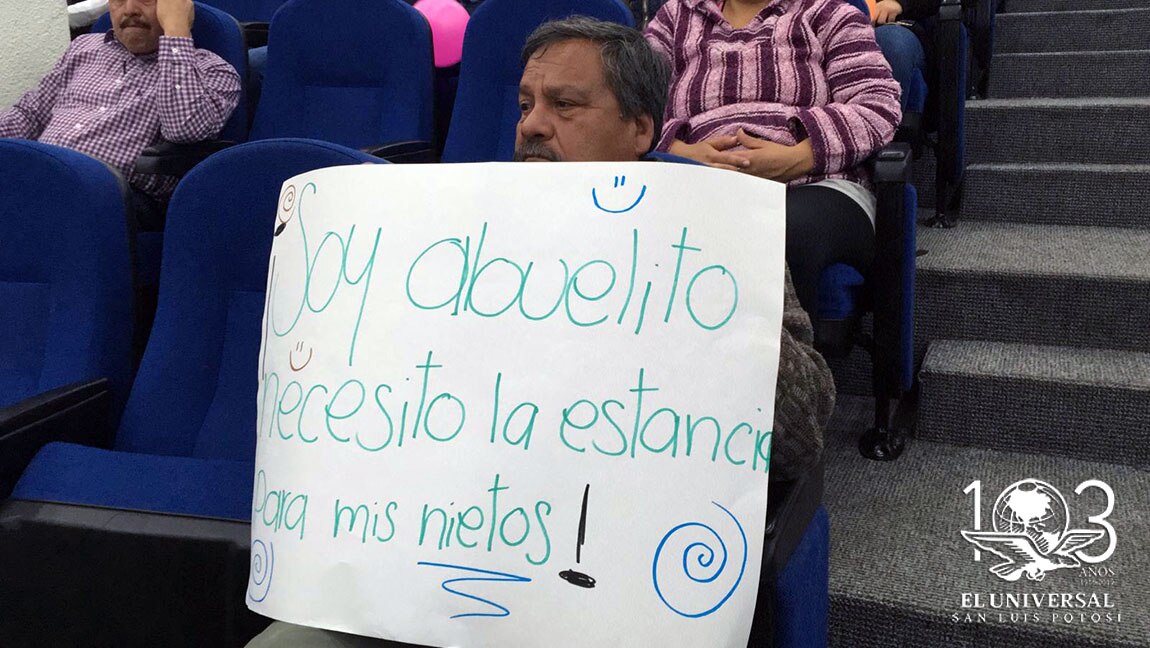 ¡Soy abuelito
necesito la estancia
para mis nietos!
103
AÑOS
1916-2019
EL UNIVERSAL
SAN LUIS POTOSI